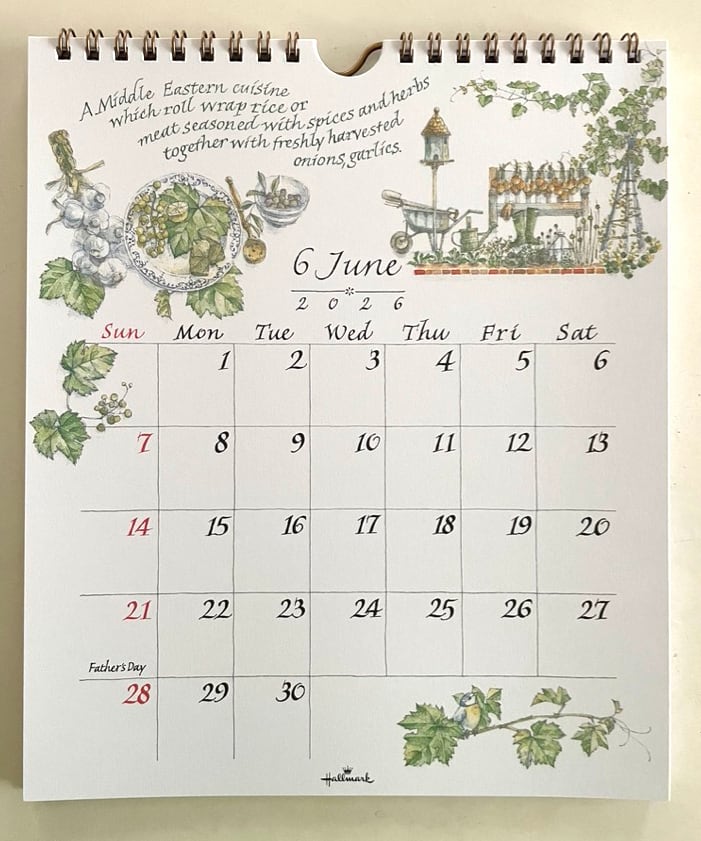 A Middle Eastern cuisine
which roll wrap rice or
meat seasoned with spices and herbs
together with freshly harvested
onions, garlics.
6 June
2026
Sun Mon Tue Wed Thu Fri Sat
1 2 3 4 5 6
7 8 9 10 11 12 13
14 15 16 17 18 19 20
21 22 23 24 25 26 27
Father's Day
28 29 30
Hallmark